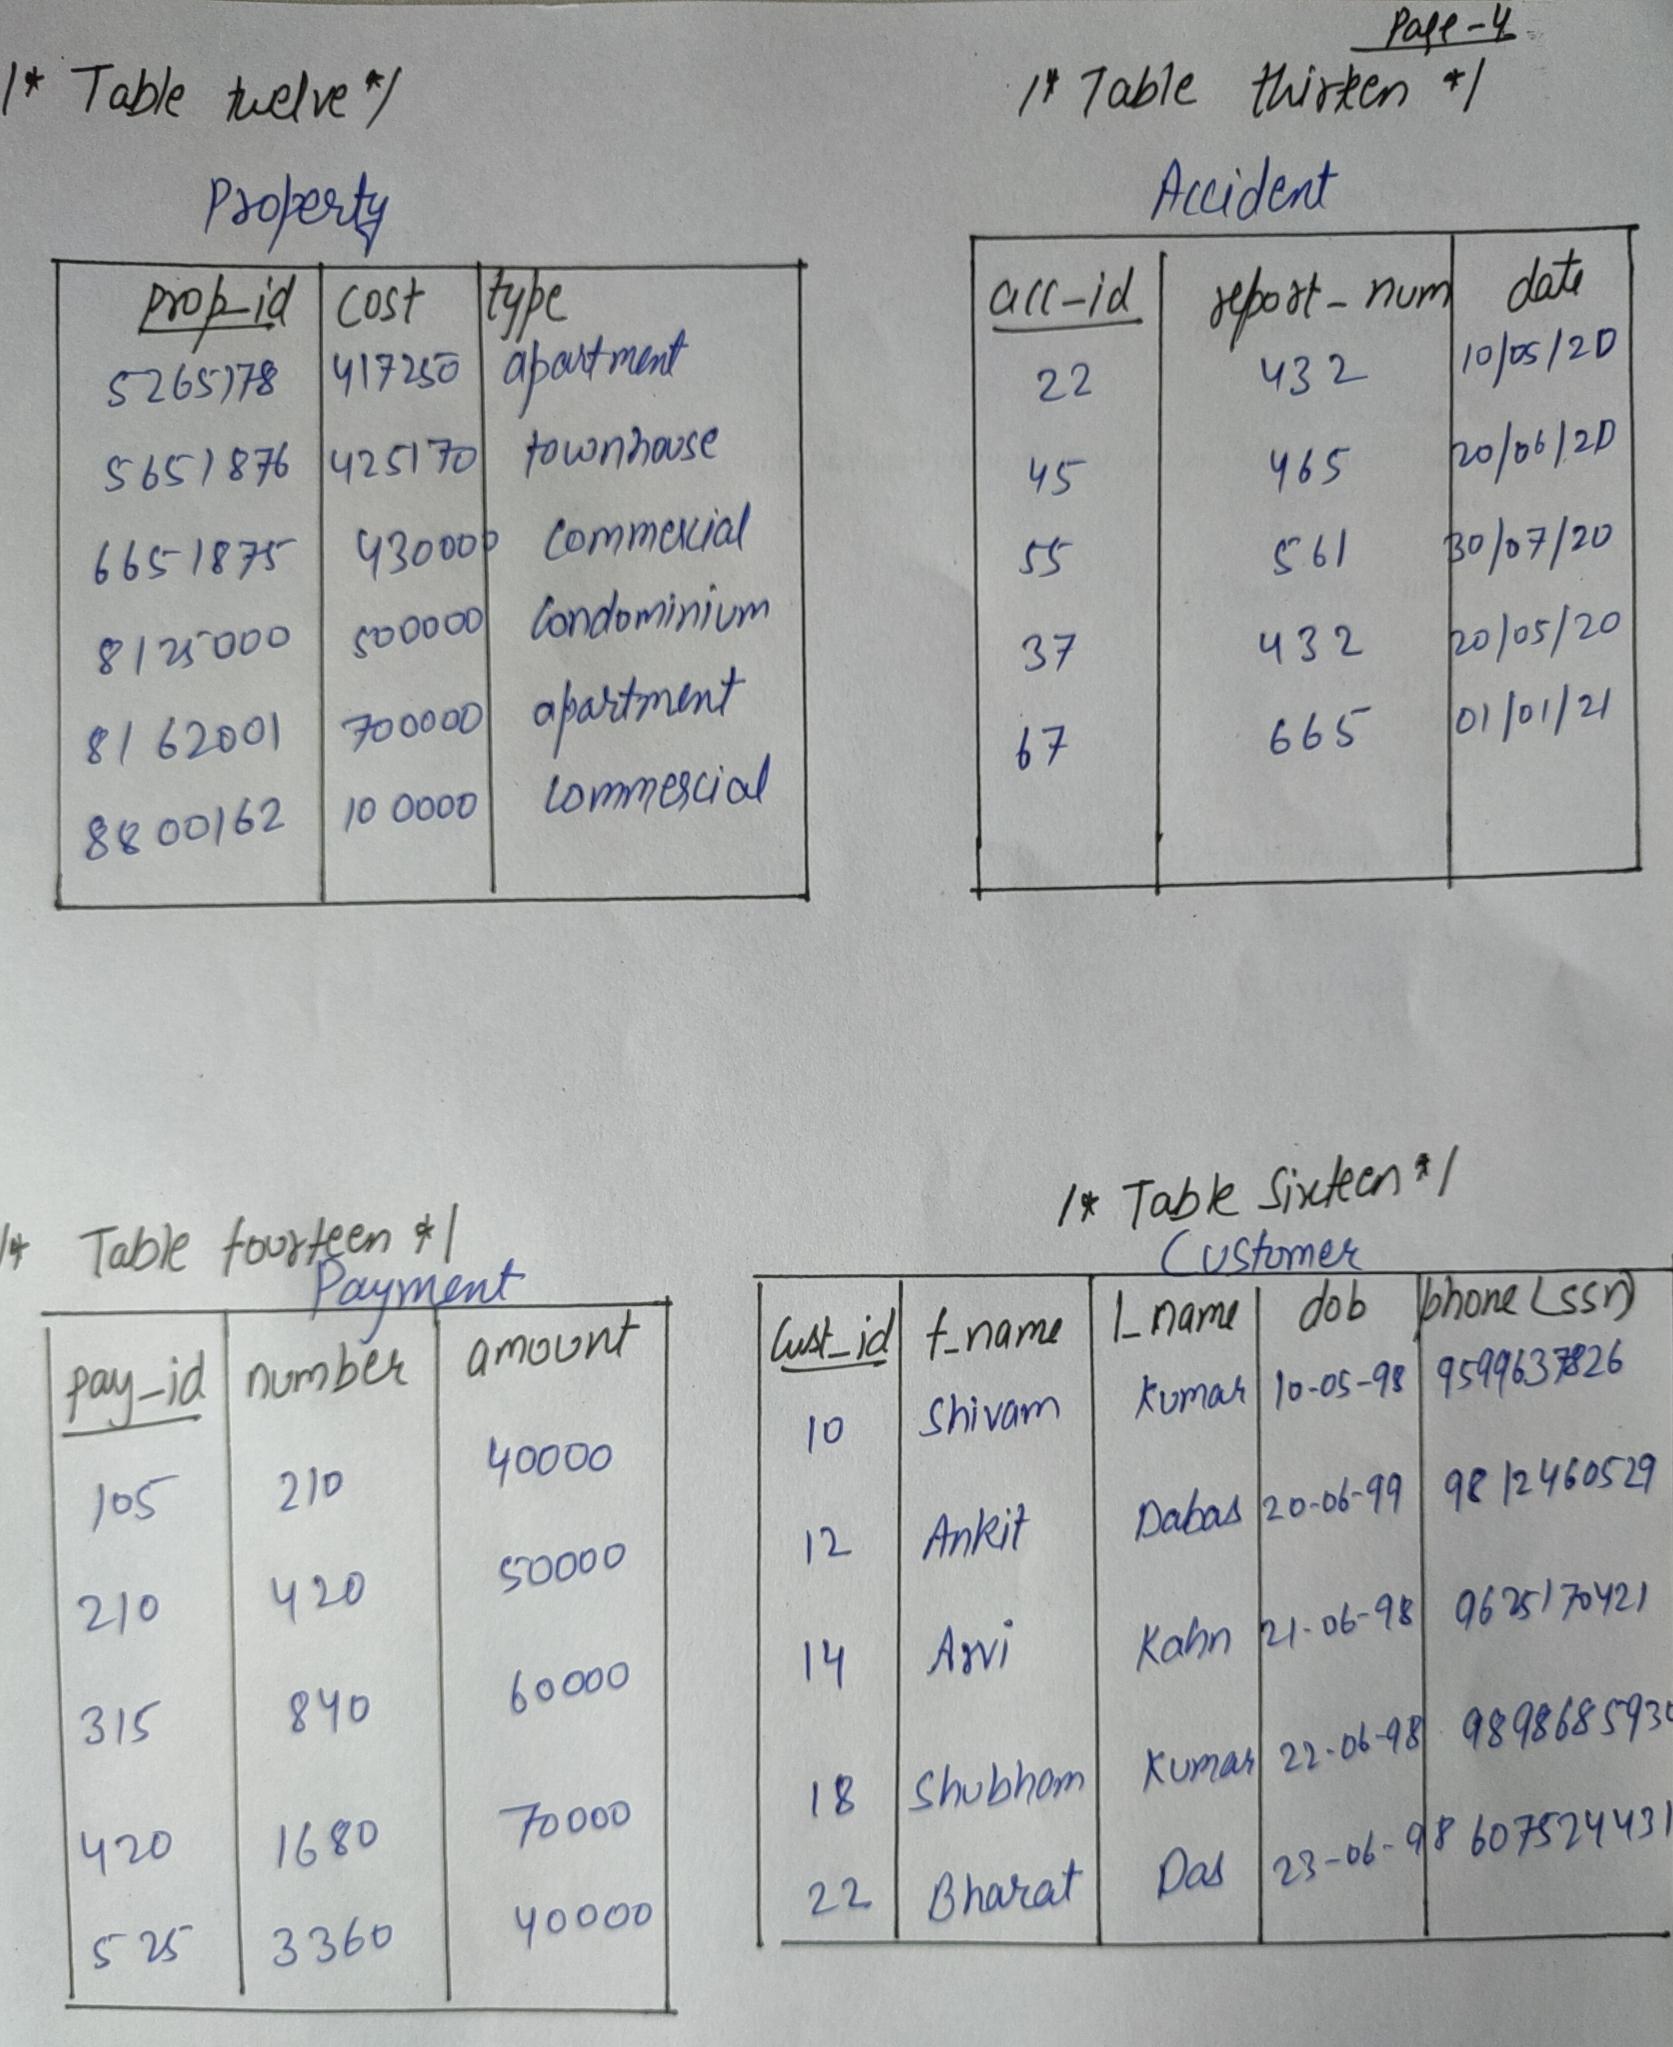 Page-4
/* Table twelve */
Property
prop_id cost type
5265178 417250 apartment
5651876 425170 townhouse
6651875 430000 commercial
8125000 500000 Condominium
8162001 700000 apartment
8800162 100000 commercial
/* Table thirteen */
Accident
acc-id report-num date
22 432 10/05/20
45 465 20/06/20
55 561 30/07/20
37 432 20/05/20
67 665 01/01/21
/* Table fourteen */
Payment
pay-id number amount
105 210 40000
210 420 50000
315 840 60000
420 1680 70000
525 3360 40000
/* Table Sixteen */
Customer
Cust_id f_name l_name dob phone (ssn)
10 Shivam Kumar 10-05-98 9599637826
12 Ankit Dabas 20-06-99 9812460529
14 Arvi Kahn 21-06-98 9625170421
18 Shubham Kumar 22-06-98
22 Bharat Das 23-06-98 607524431